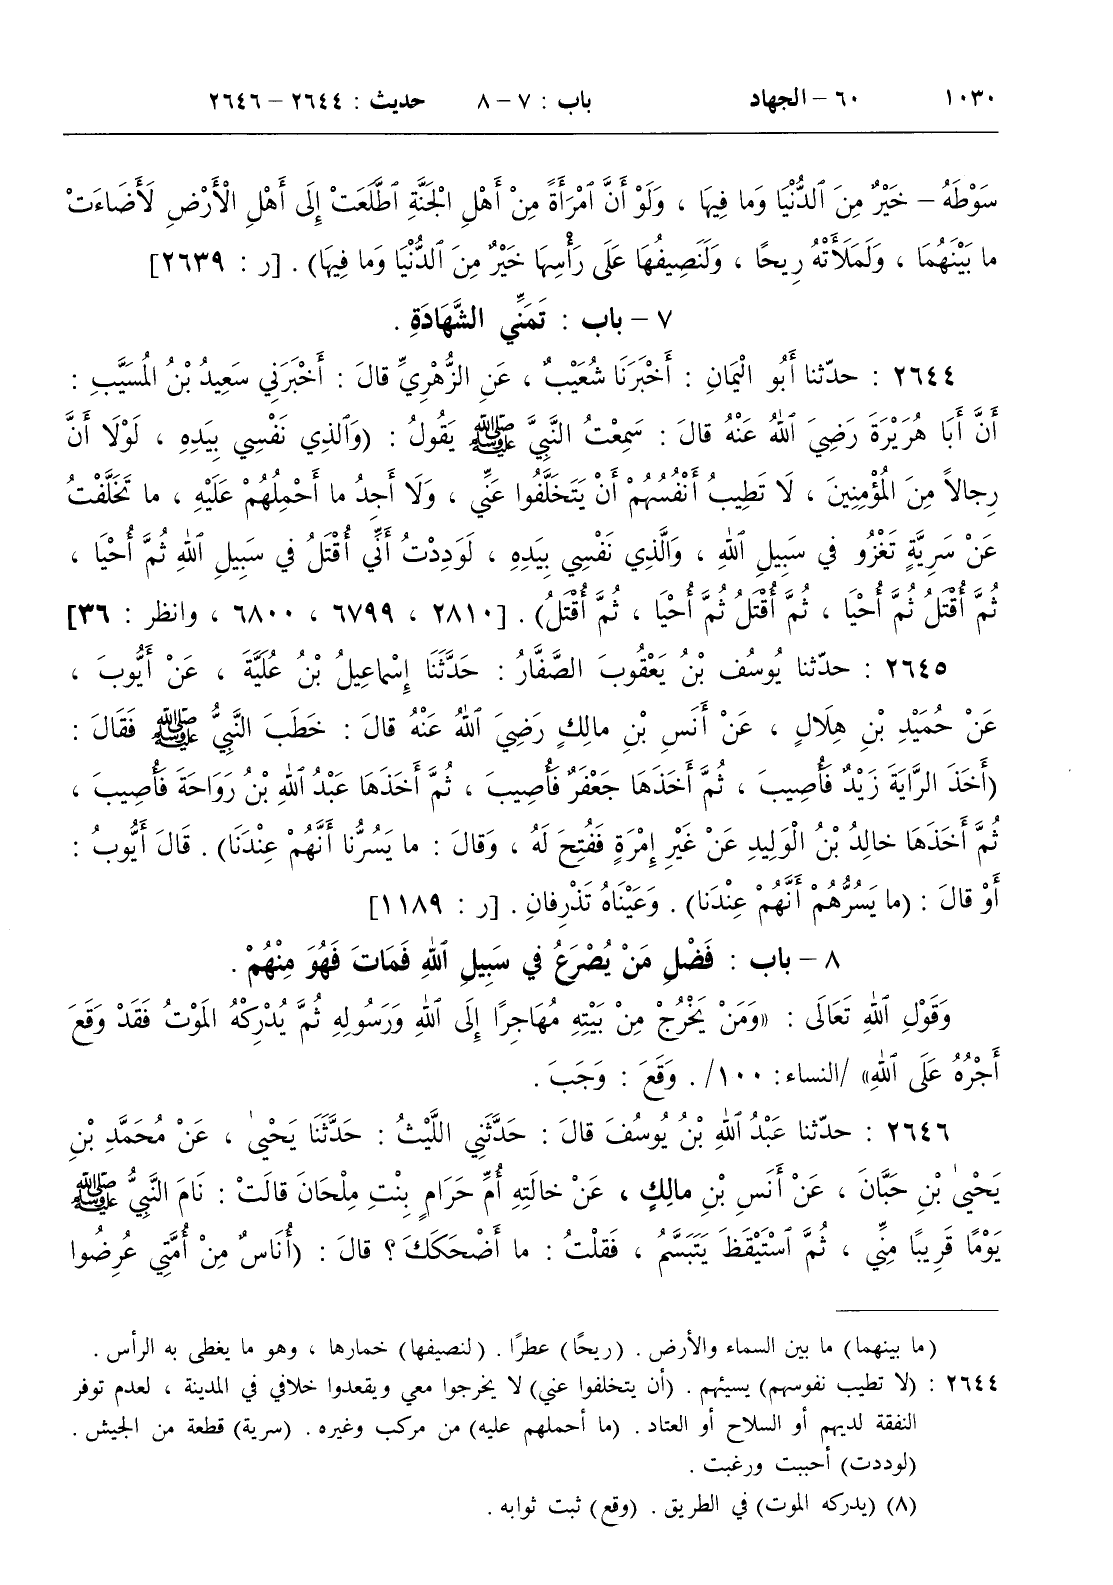 ١٠٣٠ ٦٠ – الجهاد باب : ٧ – ٨ حديث : ٢٦٤٤ – ٢٦٤٦
سَوْطَهُ – خَيْرٌ مِنَ ٱلدُّنْيَا وَما فِيهَا ، وَلَوْ أَنَّ ٱمْرَأَةً مِنْ أَهْلِ الْجَنَّةِ ٱطَّلَعَتْ إِلَى أَهْلِ الْأَرْضِ لَأَضَاءَتْ
ما بَيْنَهُمَا ، وَلَمَلَأَتْهُ رِيحًا ، وَلَنَصِيفُهَا عَلَى رَأْسِهَا خَيْرٌ مِنَ ٱلدُّنْيَا وَما فِيهَا) . [ر : ٢٦٣٩]
٧ – باب : تَمَنِّي الشَّهَادَةِ .
٢٦٤٤ : حدّثنا أَبُو الْيَمَانِ : أَخْبَرَنَا شُعَيْبٌ ، عَنِ الزُّهْرِيِّ قالَ : أَخْبَرَنِي سَعِيدُ بْنُ الْمُسَيَّبِ :
أَنَّ أَبَا هُرَيْرَةَ رَضِيَ ٱللهُ عَنْهُ قالَ : سَمِعْتُ النَّبِيَّ ﷺ يَقُولُ : (وَٱلَّذِي نَفْسِي بِيَدِهِ ، لَوْلَا أَنَّ
رِجالاً مِنَ الْمُؤْمِنِينَ ، لَا تَطِيبُ أَنْفُسُهُمْ أَنْ يَتَخَلَّفُوا عَنِّي ، وَلَا أَجِدُ ما أَحْمِلُهُمْ عَلَيْهِ ، ما تَخَلَّفْتُ
عَنْ سَرِيَّةٍ تَغْزُو في سَبِيلِ ٱللهِ ، وَالَّذِي نَفْسِي بِيَدِهِ ، لَوَدِدْتُ أَنِّي أُقْتَلُ في سَبِيلِ ٱللهِ ثُمَّ أُحْيَا ،
ثُمَّ أُقْتَلُ ثُمَّ أُحْيَا ، ثُمَّ أُقْتَلُ ثُمَّ أُحْيَا ، ثُمَّ أُقْتَلُ) . [٢٨١٠ ، ٦٧٩٩ ، ٦٨٠٠ ، وانظر : ٣٦]
٢٦٤٥ : حدّثنا يُوسُفُ بْنُ يَعْقُوبَ الصَّفَّارُ : حَدَّثَنَا إِسْماعِيلُ بْنُ عُلَيَّةَ ، عَنْ أَيُّوبَ ،
عَنْ حُمَيْدِ بْنِ هِلَالٍ ، عَنْ أَنَسِ بْنِ مالِكٍ رَضِيَ ٱللهُ عَنْهُ قالَ : خَطَبَ النَّبِيُّ ﷺ فَقَالَ :
(أَخَذَ الرَّايَةَ زَيْدٌ فَأُصِيبَ ، ثُمَّ أَخَذَهَا جَعْفَرٌ فَأُصِيبَ ، ثُمَّ أَخَذَهَا عَبْدُ ٱللهِ بْنُ رَوَاحَةَ فَأُصِيبَ ،
ثُمَّ أَخَذَهَا خالِدُ بْنُ الْوَلِيدِ عَنْ غَيْرِ إِمْرَةٍ فَفُتِحَ لَهُ ، وَقالَ : ما يَسُرُّنا أَنَّهُمْ عِنْدَنَا) . قالَ أَيُّوبُ :
أَوْ قالَ : (ما يَسُرُّهُمْ أَنَّهُمْ عِنْدَنا) . وَعَيْنَاهُ تَذْرِفانِ . [ر : ١١٨٩]
٨ – باب : فَضْلِ مَنْ يُصْرَعُ في سَبِيلِ ٱللهِ فَمَاتَ فَهُوَ مِنْهُمْ .
وَقَوْلِ ٱللهِ تَعَالَى : «وَمَنْ يَخْرُجْ مِنْ بَيْتِهِ مُهَاجِرًا إِلَى ٱللهِ وَرَسُولِهِ ثُمَّ يُدْرِكْهُ الْمَوْتُ فَقَدْ وَقَعَ
أَجْرُهُ عَلَى ٱللهِ» /النساء: ١٠٠/ . وَقَعَ : وَجَبَ .
٢٦٤٦ : حدّثنا عَبْدُ ٱللهِ بْنُ يُوسُفَ قالَ : حَدَّثَنِي اللَّيْثُ : حَدَّثَنَا يَحْيىٰ ، عَنْ مُحَمَّدِ بْنِ
يَحْيىٰ بْنِ حَبَّانَ ، عَنْ أَنَسِ بْنِ مالِكٍ ، عَنْ خالَتِهِ أُمِّ حَرَامٍ بِنْتِ مِلْحَانَ قالَتْ : نَامَ النَّبِيُّ ﷺ
يَوْمًا قَرِيبًا مِنِّي ، ثُمَّ ٱسْتَيْقَظَ يَتَبَسَّمُ ، فَقلْتُ : ما أَضْحَكَكَ ؟ قالَ : (أُنَاسٌ مِنْ أُمَّتِي عُرِضُوا
(ما بينهما) ما بين السماء والأرض . (ريحًا) عطرًا . (لنصيفها) خمارها ، وهو ما يغطى به الرأس .
٢٦٤٤ : (لا تطيب نفوسهم) يسيئهم . (أن يتخلفوا عني) لا يخرجوا معي ويقعدوا خلافي في المدينة ، لعدم توفر
النفقة لديهم أو السلاح أو العتاد . (ما أحملهم عليه) من مركب وغيره . (سرية) قطعة من الجيش .
(لوددت) أحببت ورغبت .
(٨) (يدركه الموت) في الطريق . (وقع) ثبت ثوابه .